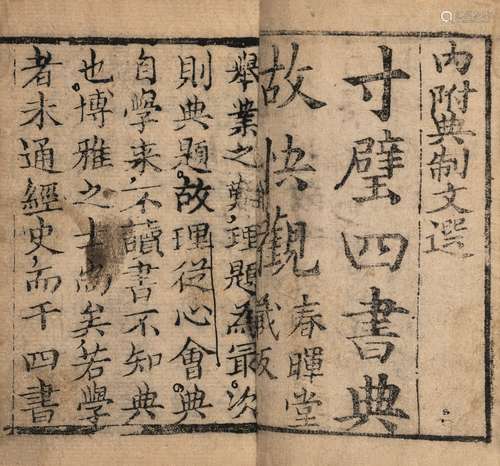 內附典制文選
寸璧四書典
故快觀
春暉堂
藏板
舉業之難,理題為最。次
則典題。故理從心會。典
自學來,不讀書不知典
也。博雅之士尚矣。若學
者未通經史,而于四書